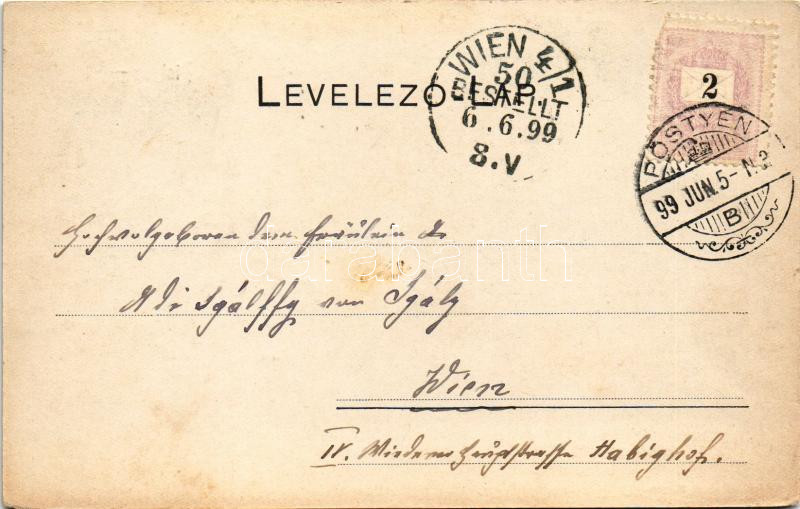 WIEN 4/1
50
BESTELLT
6.6.99
8.V
LEVELEZŐ-LAP
2
PÖSTYÉN
99 JUN. 5 - N. 2
B
Hochwolgeboren dem Fräulein
darabanth
Adi Igálffy von Igály
Wien
IV. Wiedner Hauptstrasse Habighof.